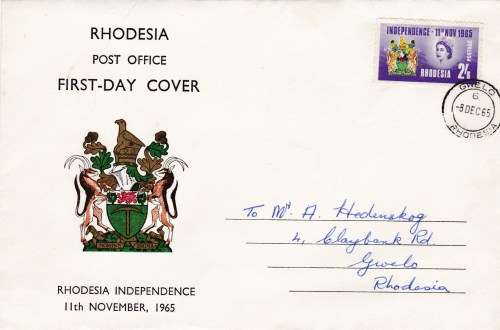 RHODESIA
POST OFFICE
FIRST-DAY COVER
INDEPENDENCE - 11th NOV 1965
POSTAGE
RHODESIA 2/6
GWELO
6
-8 DEC 65
RHODESIA
To Mr. A. Hedenskog
4, Claybank Rd.
Gwelo
Rhodesia
RHODESIA INDEPENDENCE
11th NOVEMBER, 1965